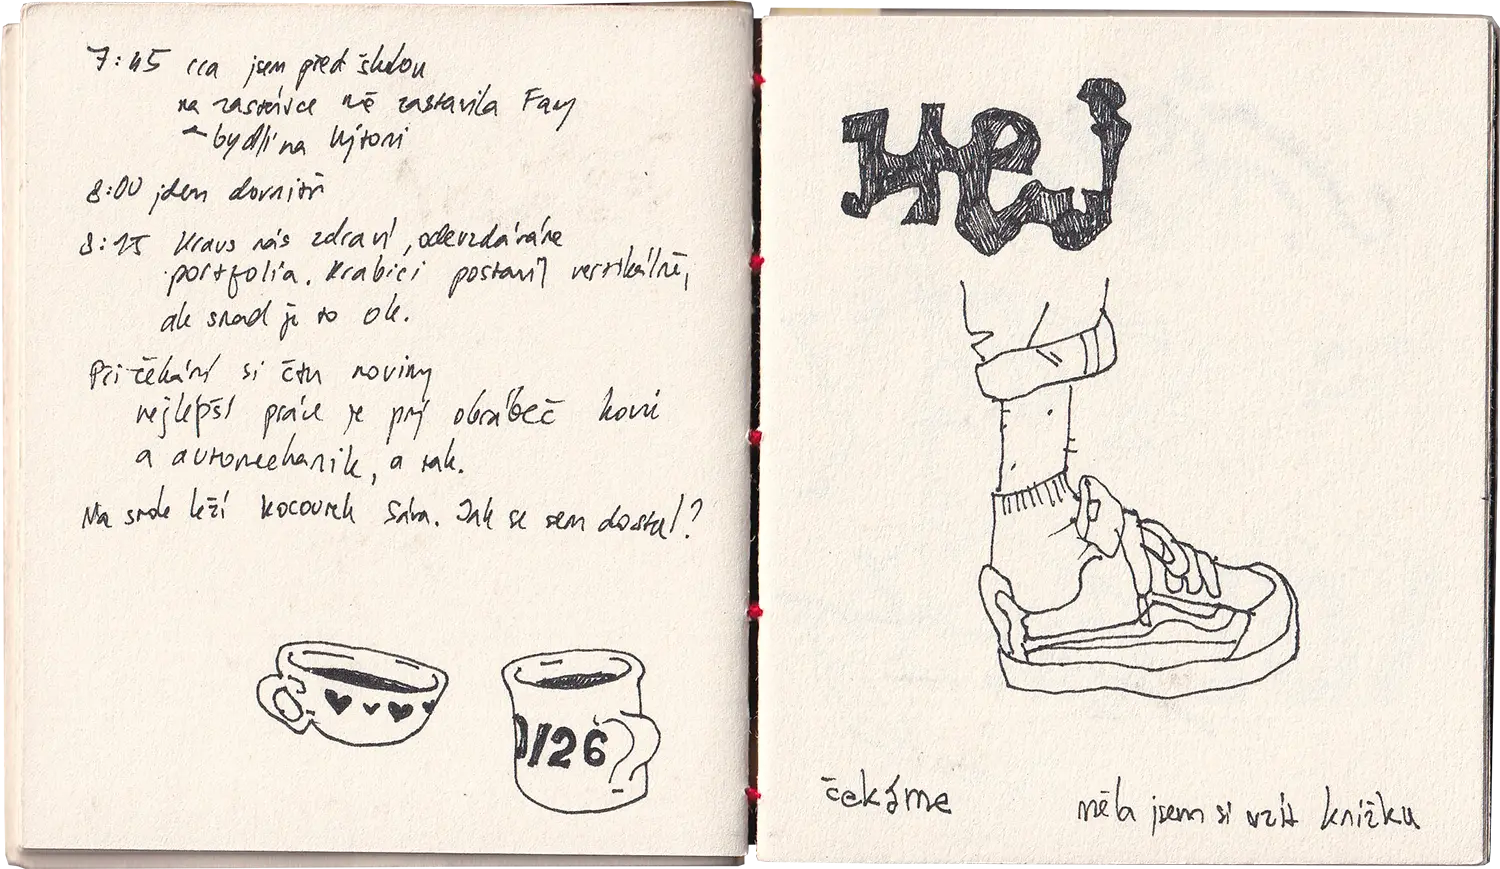 7:45 cca jsem před školou
na zastávce mě zastavila Fany
bydlí na Výtoni
8:00 jdem dovnitř
8:15 Kraus nás zdraví, odevzdáváme
portfolia. Krabici postavil vertikálně,
ale snad je to ok.
Při čekání si čtu noviny
nejlepší práce je prý obráběč kovů
a automechanik, a tak.
Na stole leží kocourek Sáva. Jak se sem dostal?
/26
Hej
čekáme
měla jsem si vzít knížku